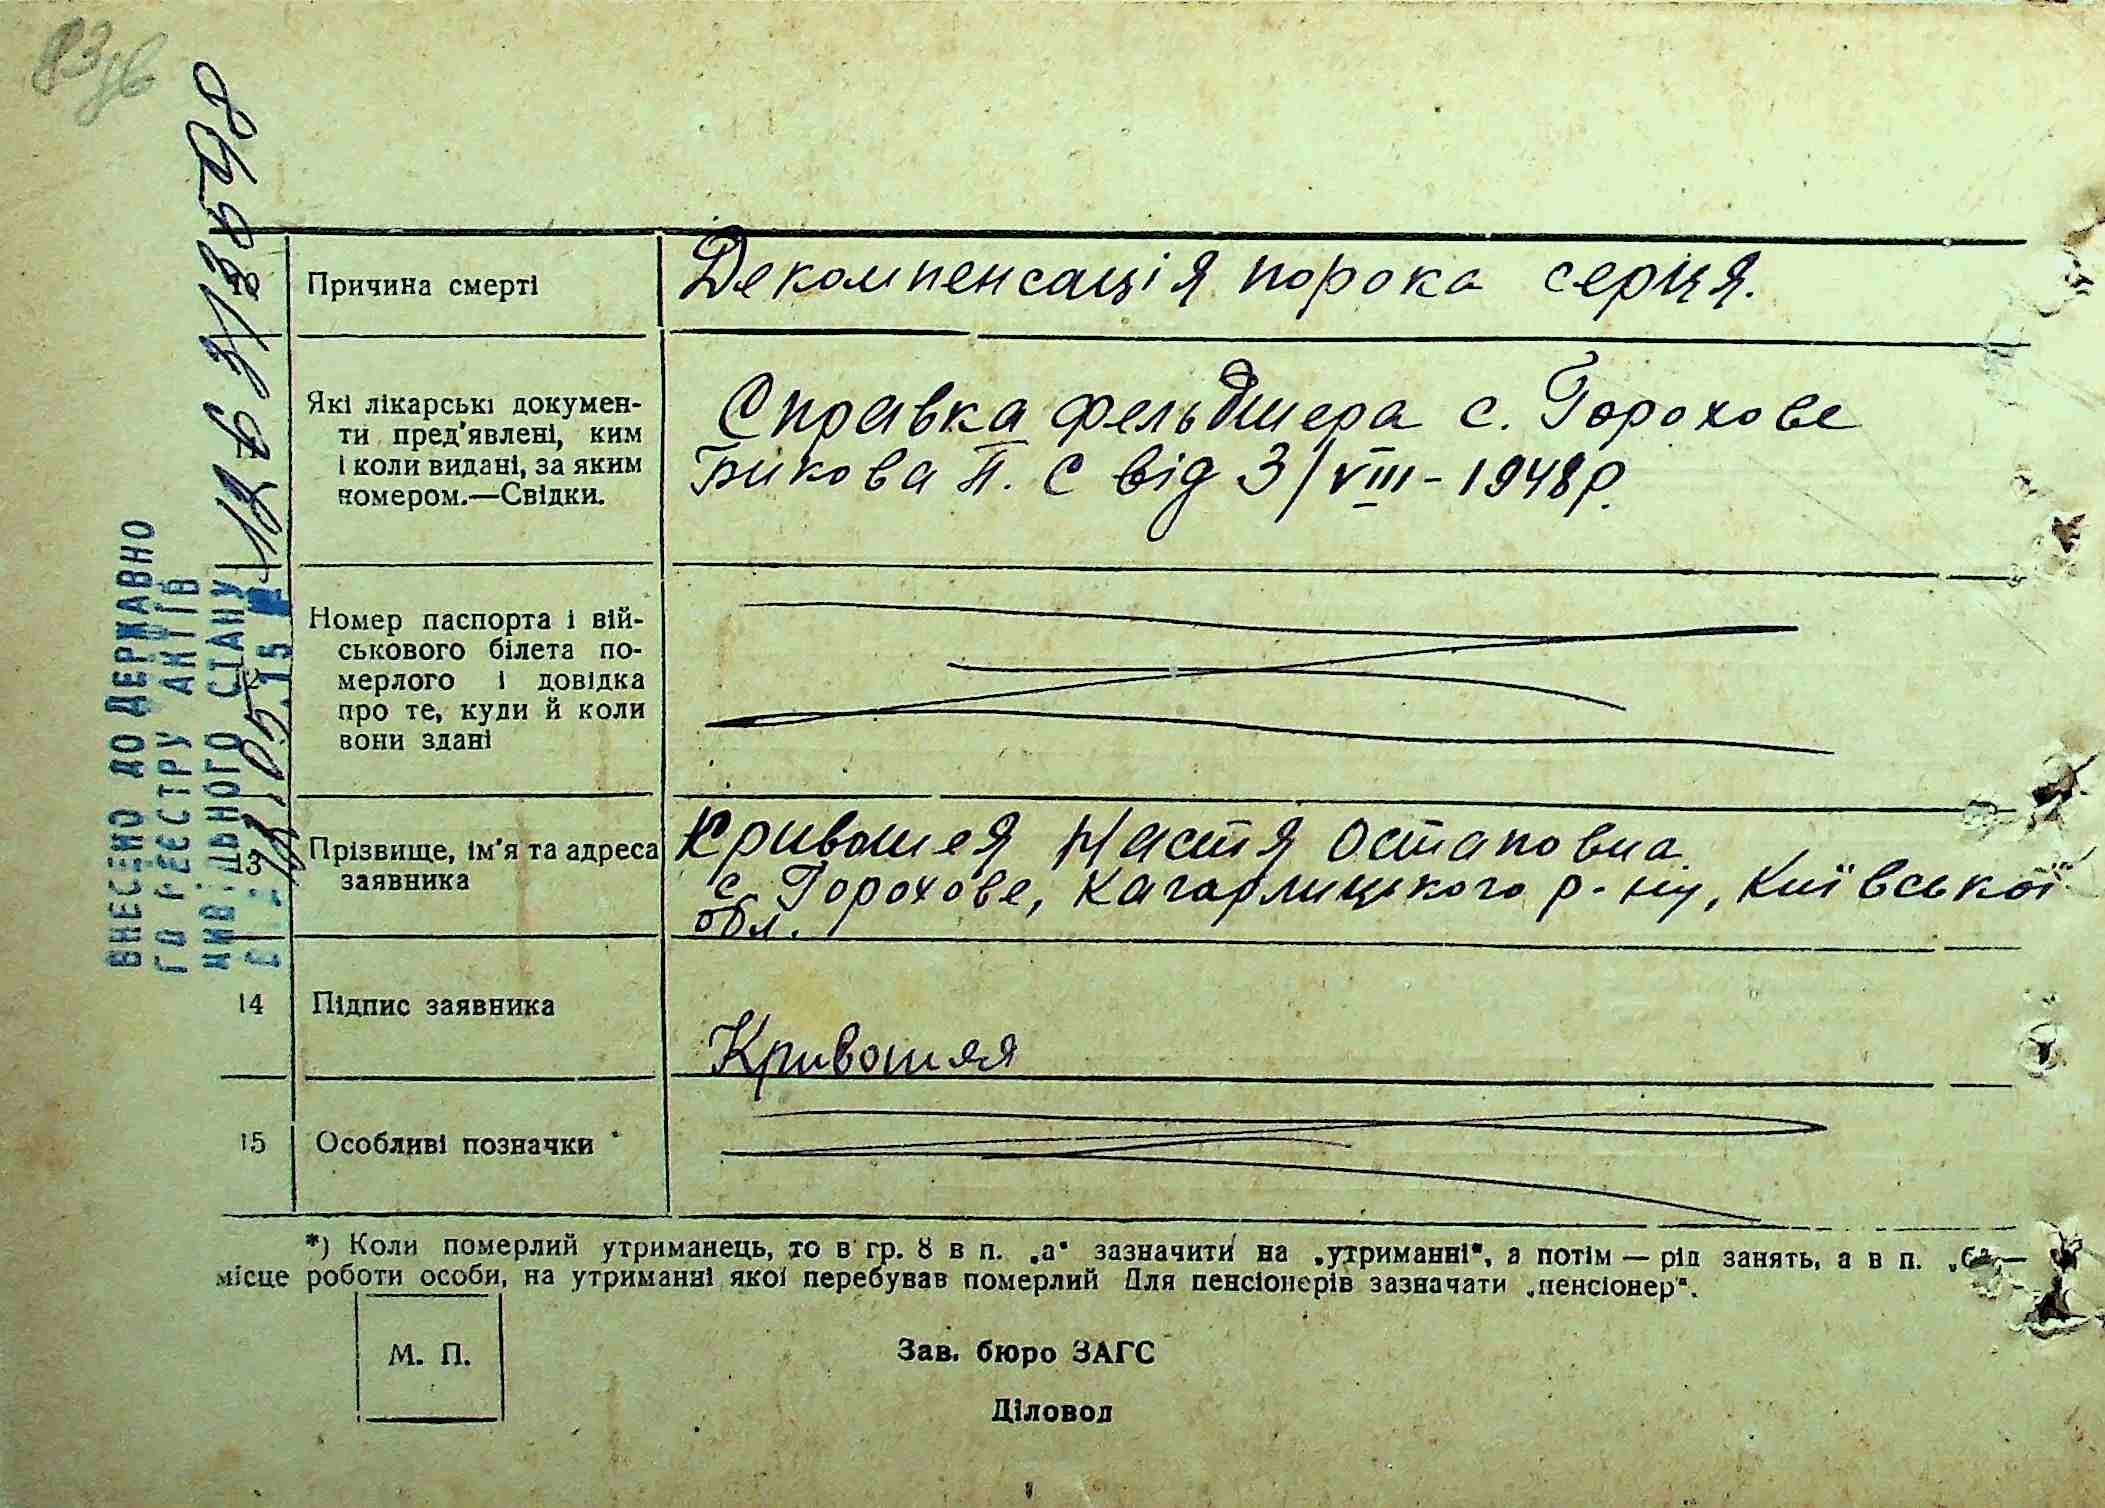 83зв
Причина смерті
Декомпенсація порока серця.
Які лікарські докумен-
ти пред'явлені, ким
і коли видані, за яким
номером.—Свідки.
Справка фельдшера с. Горохове
Бикова П. С від 3/VIII-1948р.
Номер паспорта і вій-
ськового білета по-
мерлого і довідка
про те, куди й коли
вони здані
13
Прізвище, ім'я та адреса
заявника
Кривошея Настя Остаповна
с. Горохове, Кагарлицького р-ну, Київської
обл.
14
Підпис заявника
Кривошея
15
Особливі позначки
*) Коли померлий утриманець, то в гр. 8 в п. „а" зазначити на „утриманні", а потім — рід занять, а в п. „б" —
місце роботи особи, на утриманні якої перебував померлий Для пенсіонерів зазначати „пенсіонер".
М. П.
Зав. бюро ЗАГС
Діловод
ВНЕСЕНО ДО ДЕРЖАВНО
ГО РЕЄСТРУ АКТІВ
ЦИВІЛЬНОГО СТАНУ